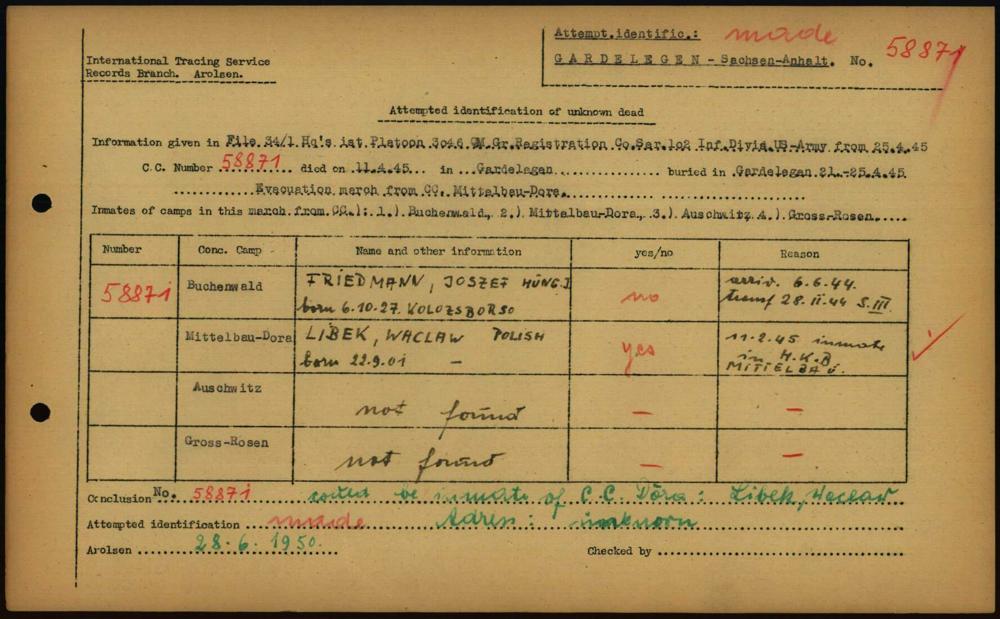 Attempt.identific.: made
GARDELEGEN - Sachsen-Anhalt. No. 58871
International Tracing Service
Records Branch. Arolsen.
Attempted identification of unknown dead
Information given in File 34/1 Hq's 1st Platoon 3046 QM.Gr.Registration Co.Sar.102 Inf.Divis.US-Army from 25.4.45
C.C. Number 58871 died on 11.4.45 in Gardelegen buried in Gardelegen 21.-25.4.45
Evacuation march from CC. Mittelbau-Dora.
Inmates of camps in this march from CC.: 1.) Buchenwald, 2.) Mittelbau-Dora, 3.) Auschwitz 4.) Gross-Rosen.
Number Conc. Camp Name and other information yes/no Reason
58871 Buchenwald FRIEDMANN, JOSZEF HUNG.J no arriv. 6.6.44
born 6.10.27. KOLOZSBORSO transf 28.11.44 S.III
Mittelbau-Dora LIBEK, WACLAW POLISH yes 11.2.45 inmate
born 22.9.01 - in H.K.B
MITTELBAU.
Auschwitz not found - -
Gross-Rosen not found - -
Conclusion No. 58871 could be inmate of C.C. Dora: Libek, Wacław
Attempted identification made Adress: unknown
Arolsen 28.6.1950. Checked by